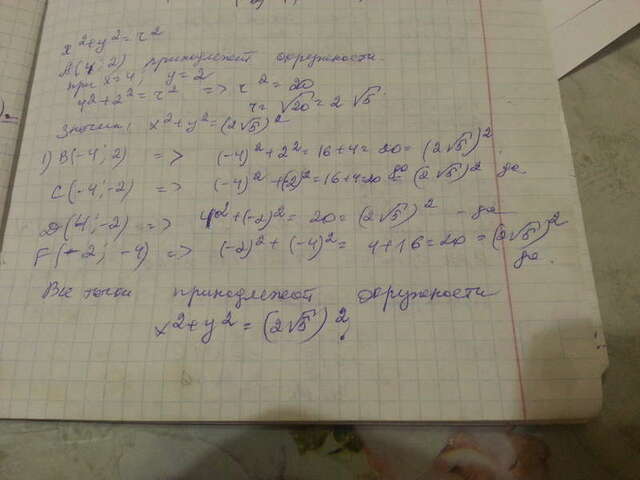 x²+y²=r²
A(4; 2) принадлежит окружности.
при x=4, y=2
4²+2²=r² => r²=20
r=√20=2√5.
Значит, x²+y²=(2√5)²
1) B(-4; 2) => (-4)²+2²=16+4=20=(2√5)² да
C(-4;-2) => (-4)²+(-2)²=16+4=20=(2√5)² да
D(4;-2) => 4²+(-2)²=20=(2√5)² - да
F(-2; -4) => (-2)²+(-4)²=4+16=20=(2√5)²
да.
Все точки принадлежат окружности
x²+y²=(2√5)²